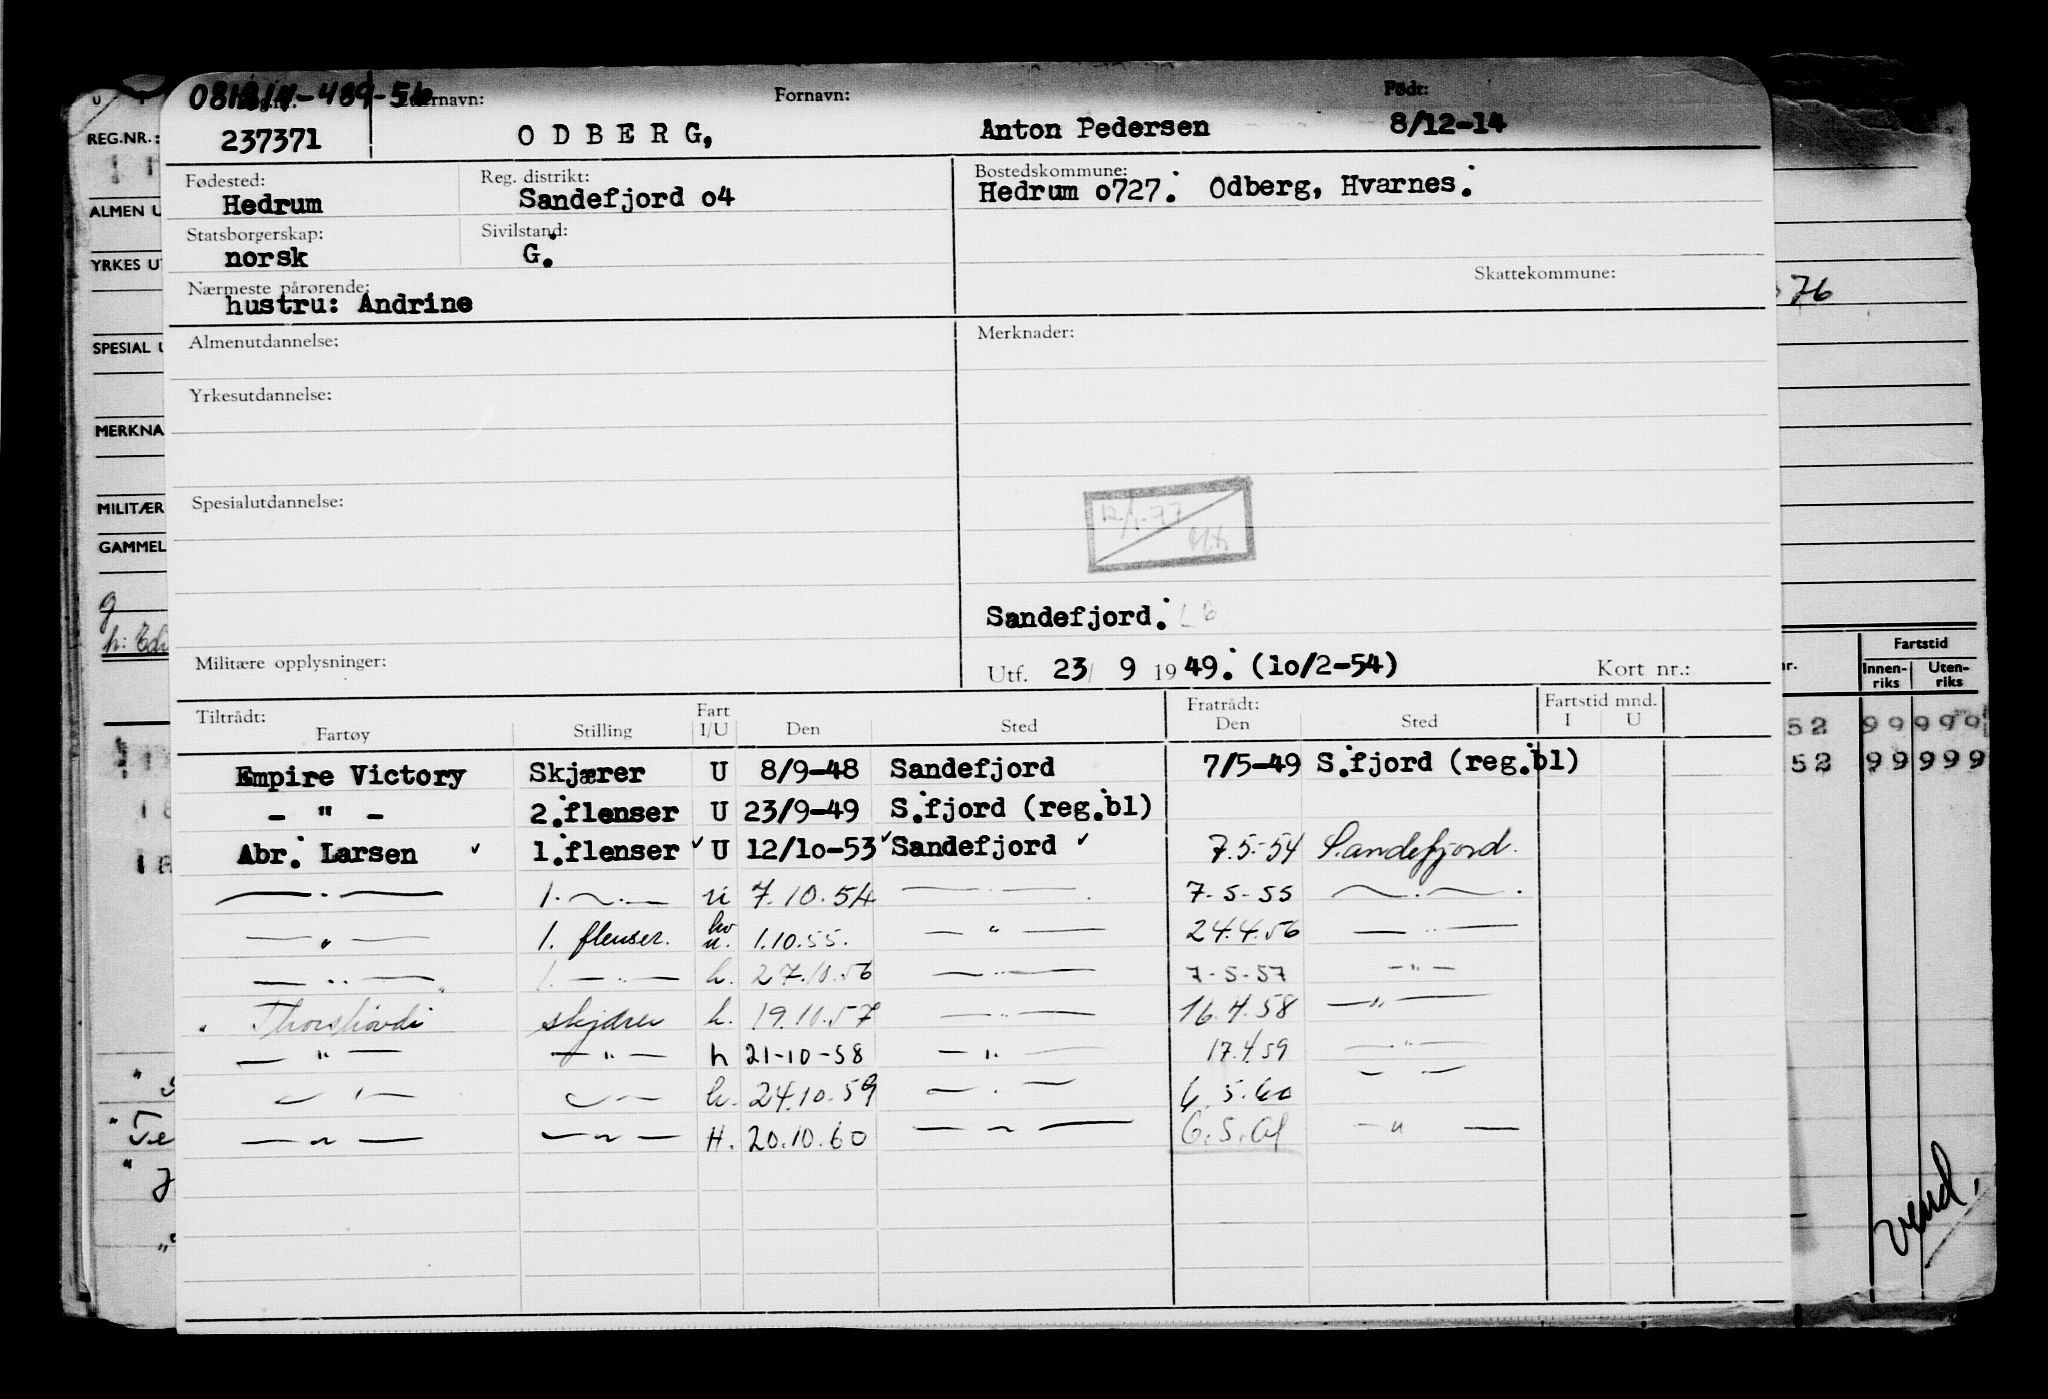 081214-489-56
Etternavn: Fornavn: Født:
237371 ODBERG, Anton Pedersen 8/12-14
Fødested: Reg. distrikt: Bostedskommune:
Hedrum Sandefjord o4 Hedrum o727. Odberg, Hvarnes.
Statsborgerskap: Sivilstand:
norsk G.
Nærmeste pårørende: Skattekommune:
hustru: Andrine
Almenutdannelse: Merknader:
Yrkesutdannelse:
Spesialutdannelse:
12/1-77
Sandefjord.
Militære opplysninger: Utf. 23/ 9 1949. (1o/2-54) Kort nr.:
Tiltrådt: Fart Fratrådt: Fartstid mnd.
Fartøy Stilling I/U Den Sted Den Sted I U
Empire Victory Skjærer U 8/9-48 Sandefjord 7/5-49 S.fjord (reg.bl)
- " - 2.flenser U 23/9-49 S.fjord (reg.bl)
Abr. Larsen ✓ 1.flenser ✓ U 12/1o-53 ✓ Sandefjord ✓ 7.5-54 Sandefjord.
— . — 1. ~ . — u 7.10.54 — . — 7-5-55 ~ . ~ .
— " — 1. flenser. hv u. 1.10.55. — " — 24.4.56 — .. —
— .. — 1. — .. — h. 27.10.56 — .. — 7-5-57 — " —
Thorshövdi skjärer h. 19.10.57 — .. — 16.4.58 — " —
— " — — " — h 21-10-58 — ". — 17.4.59 — " —
— ' — — — h. 24.10.59 — . — 6. 5.60 — —
— " — — " — H. 20.10.60 — " — 6.5.61 — " —
REG.NR.:
ALMEN U
YRKES UT
SPESIAL U
MERKNA
MILITÆR
GAMMEL
g
h: Edv
76
Fartstid
nr. Innen-riks Uten-riks
52 99 999
52 99 999
vend.